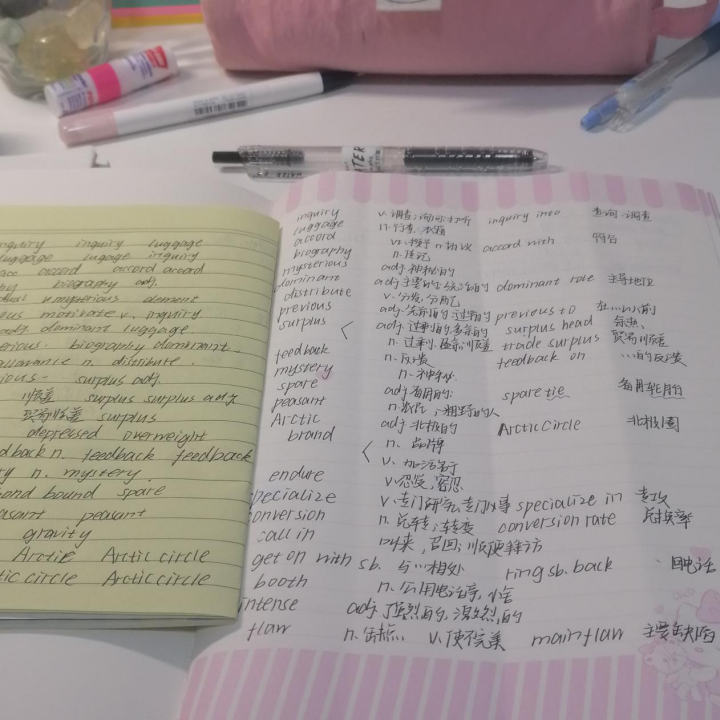 inquiry inquiry luggage
luggage lugage inquiry
accord accord accord
biography adj.
mysterious element
motivate v. inquiry
adj dominant luggage
biography dominant.
n. distribute.
surplus adj.
顺差 surplus surplus adj
贸易顺差 surplus
depressed overweight
feedback n. feedback feedback
n. mystery.
bound spare
peasant peasant
gravity
Arctic Arctic circle
circle Arctic circle
inquiry v. 调查; inquiry into 查询 调查
luggage n. 行李
accord vt. 授予 n. 协议 accord with 符合
biography n. 传记
mysterious adj. 神秘的
dominant adj 主要的 dominant role 主导地位
distribute v. 分发, 分配
previous adj. previous to 在……以前
surplus adj. 过剩的 surplus head
n. 过剩, trade surplus 贸易顺差
feedback n. 反馈 feedback on ……的反馈
mystery n. 神秘
spare adj. 备用的 spare tie 备用轮胎
peasant n. 农民
Arctic adj 北极的 Arctic Circle 北极圈
brand n. 品牌
v.
endure v. 忍受, 容忍
specialize v. 专门研究, specialize in 专攻
conversion n. 转变 conversion rate 转换率
call in 叫来, 召回; 顺便拜访
get on with sb. 与…相处 ring sb. back 回电话
booth n. 公用电话亭,
intense adj 强烈的, 激烈的
flaw n. 缺点 v. 使不完美 main flaw 主要缺陷